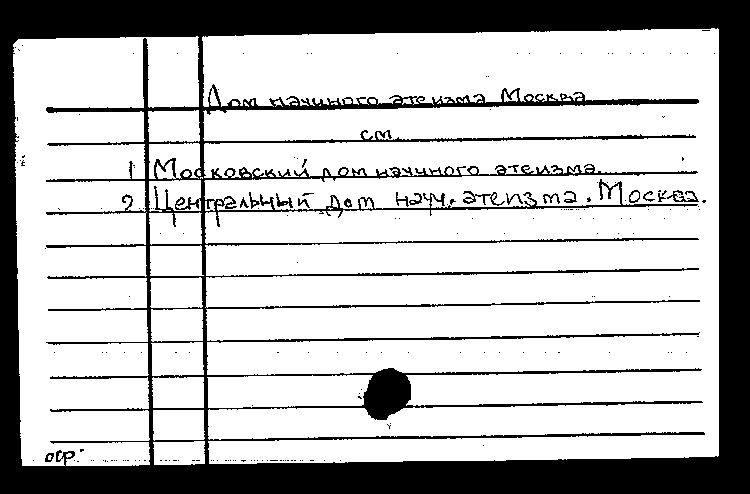 Дом научного атеизма Москва
см.
1 Московский дом научного атеизма.
2 Центральный дом науч. атеизма. Москва.